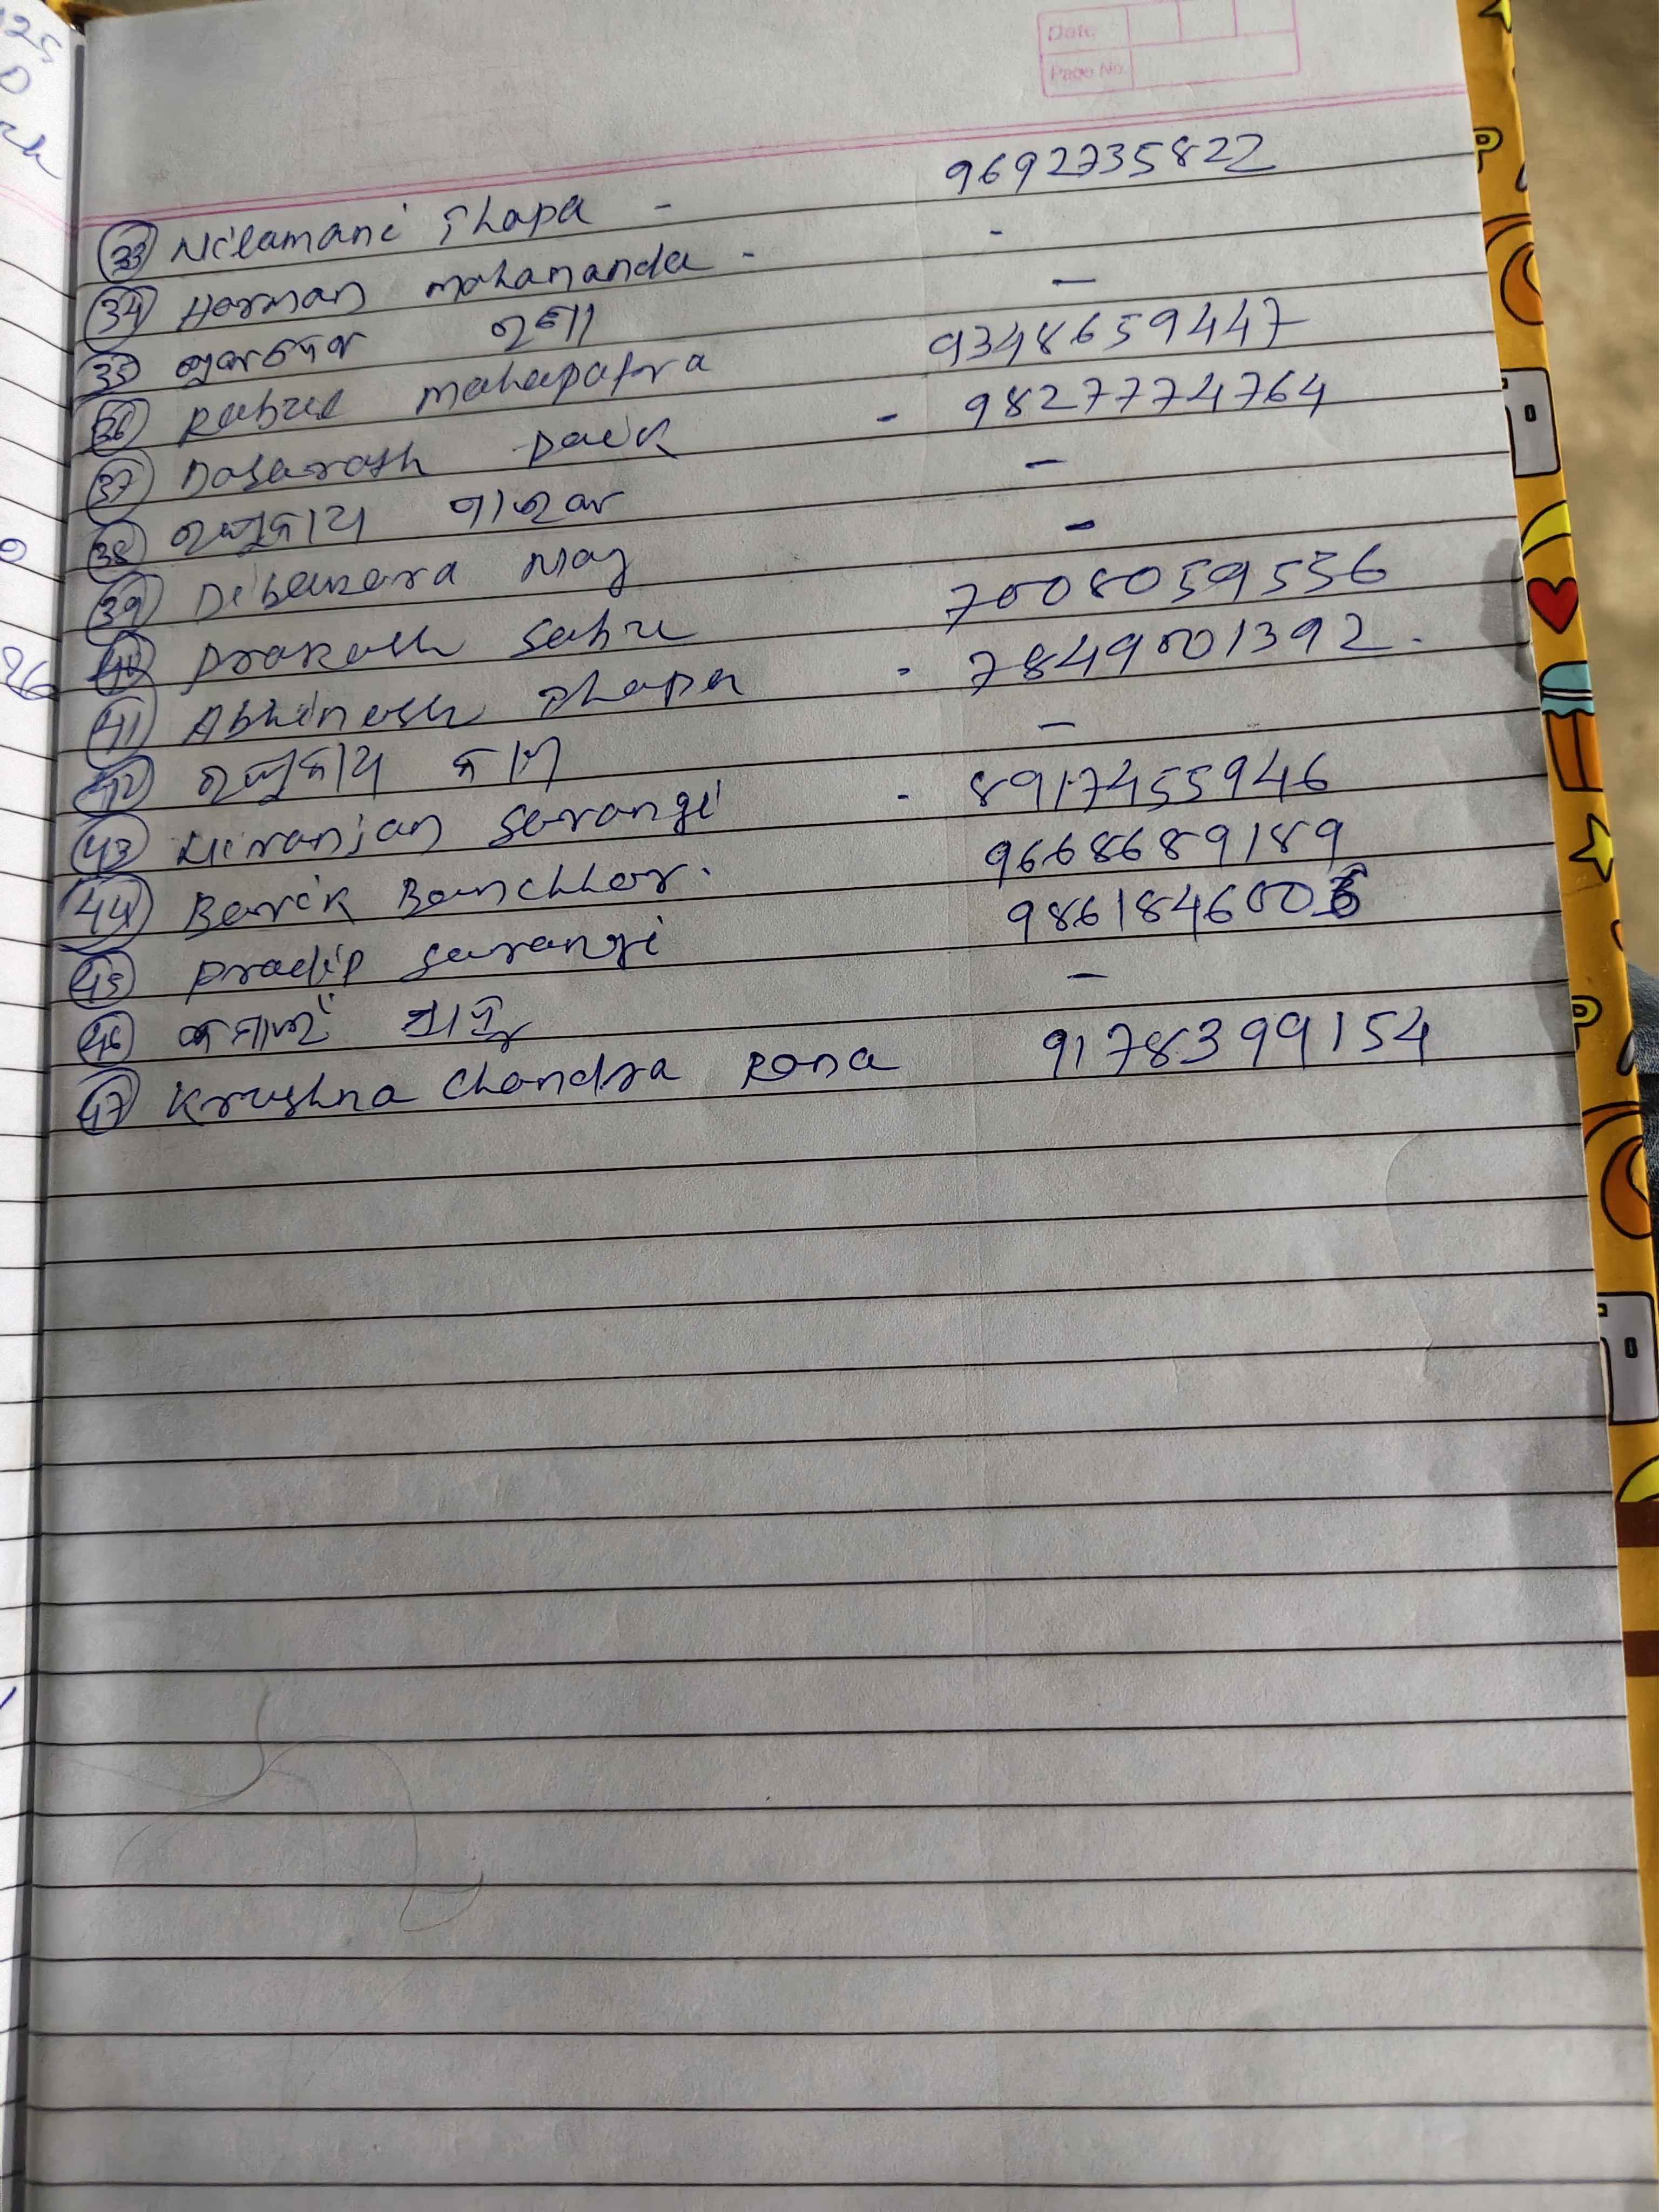 Date
Page No.
33 Nilamani Thapa - 9692735822
34 Harman mahananda - -
35 -
36 Rahul mahapatra 9348659447
37 Dasarath Paik - 9827774764
38 -
39 Dibakara Nag -
40 Prakash Sahu 7008059536
41 Abhinash Thapa - 7849801392.
42 -
43 Niranjan Sarangi - 8917455946
44 Barik Banchhor. 9668689189
45 Pradip Sarangi
46 -
47 Krushna Chandra Rana 9178399154